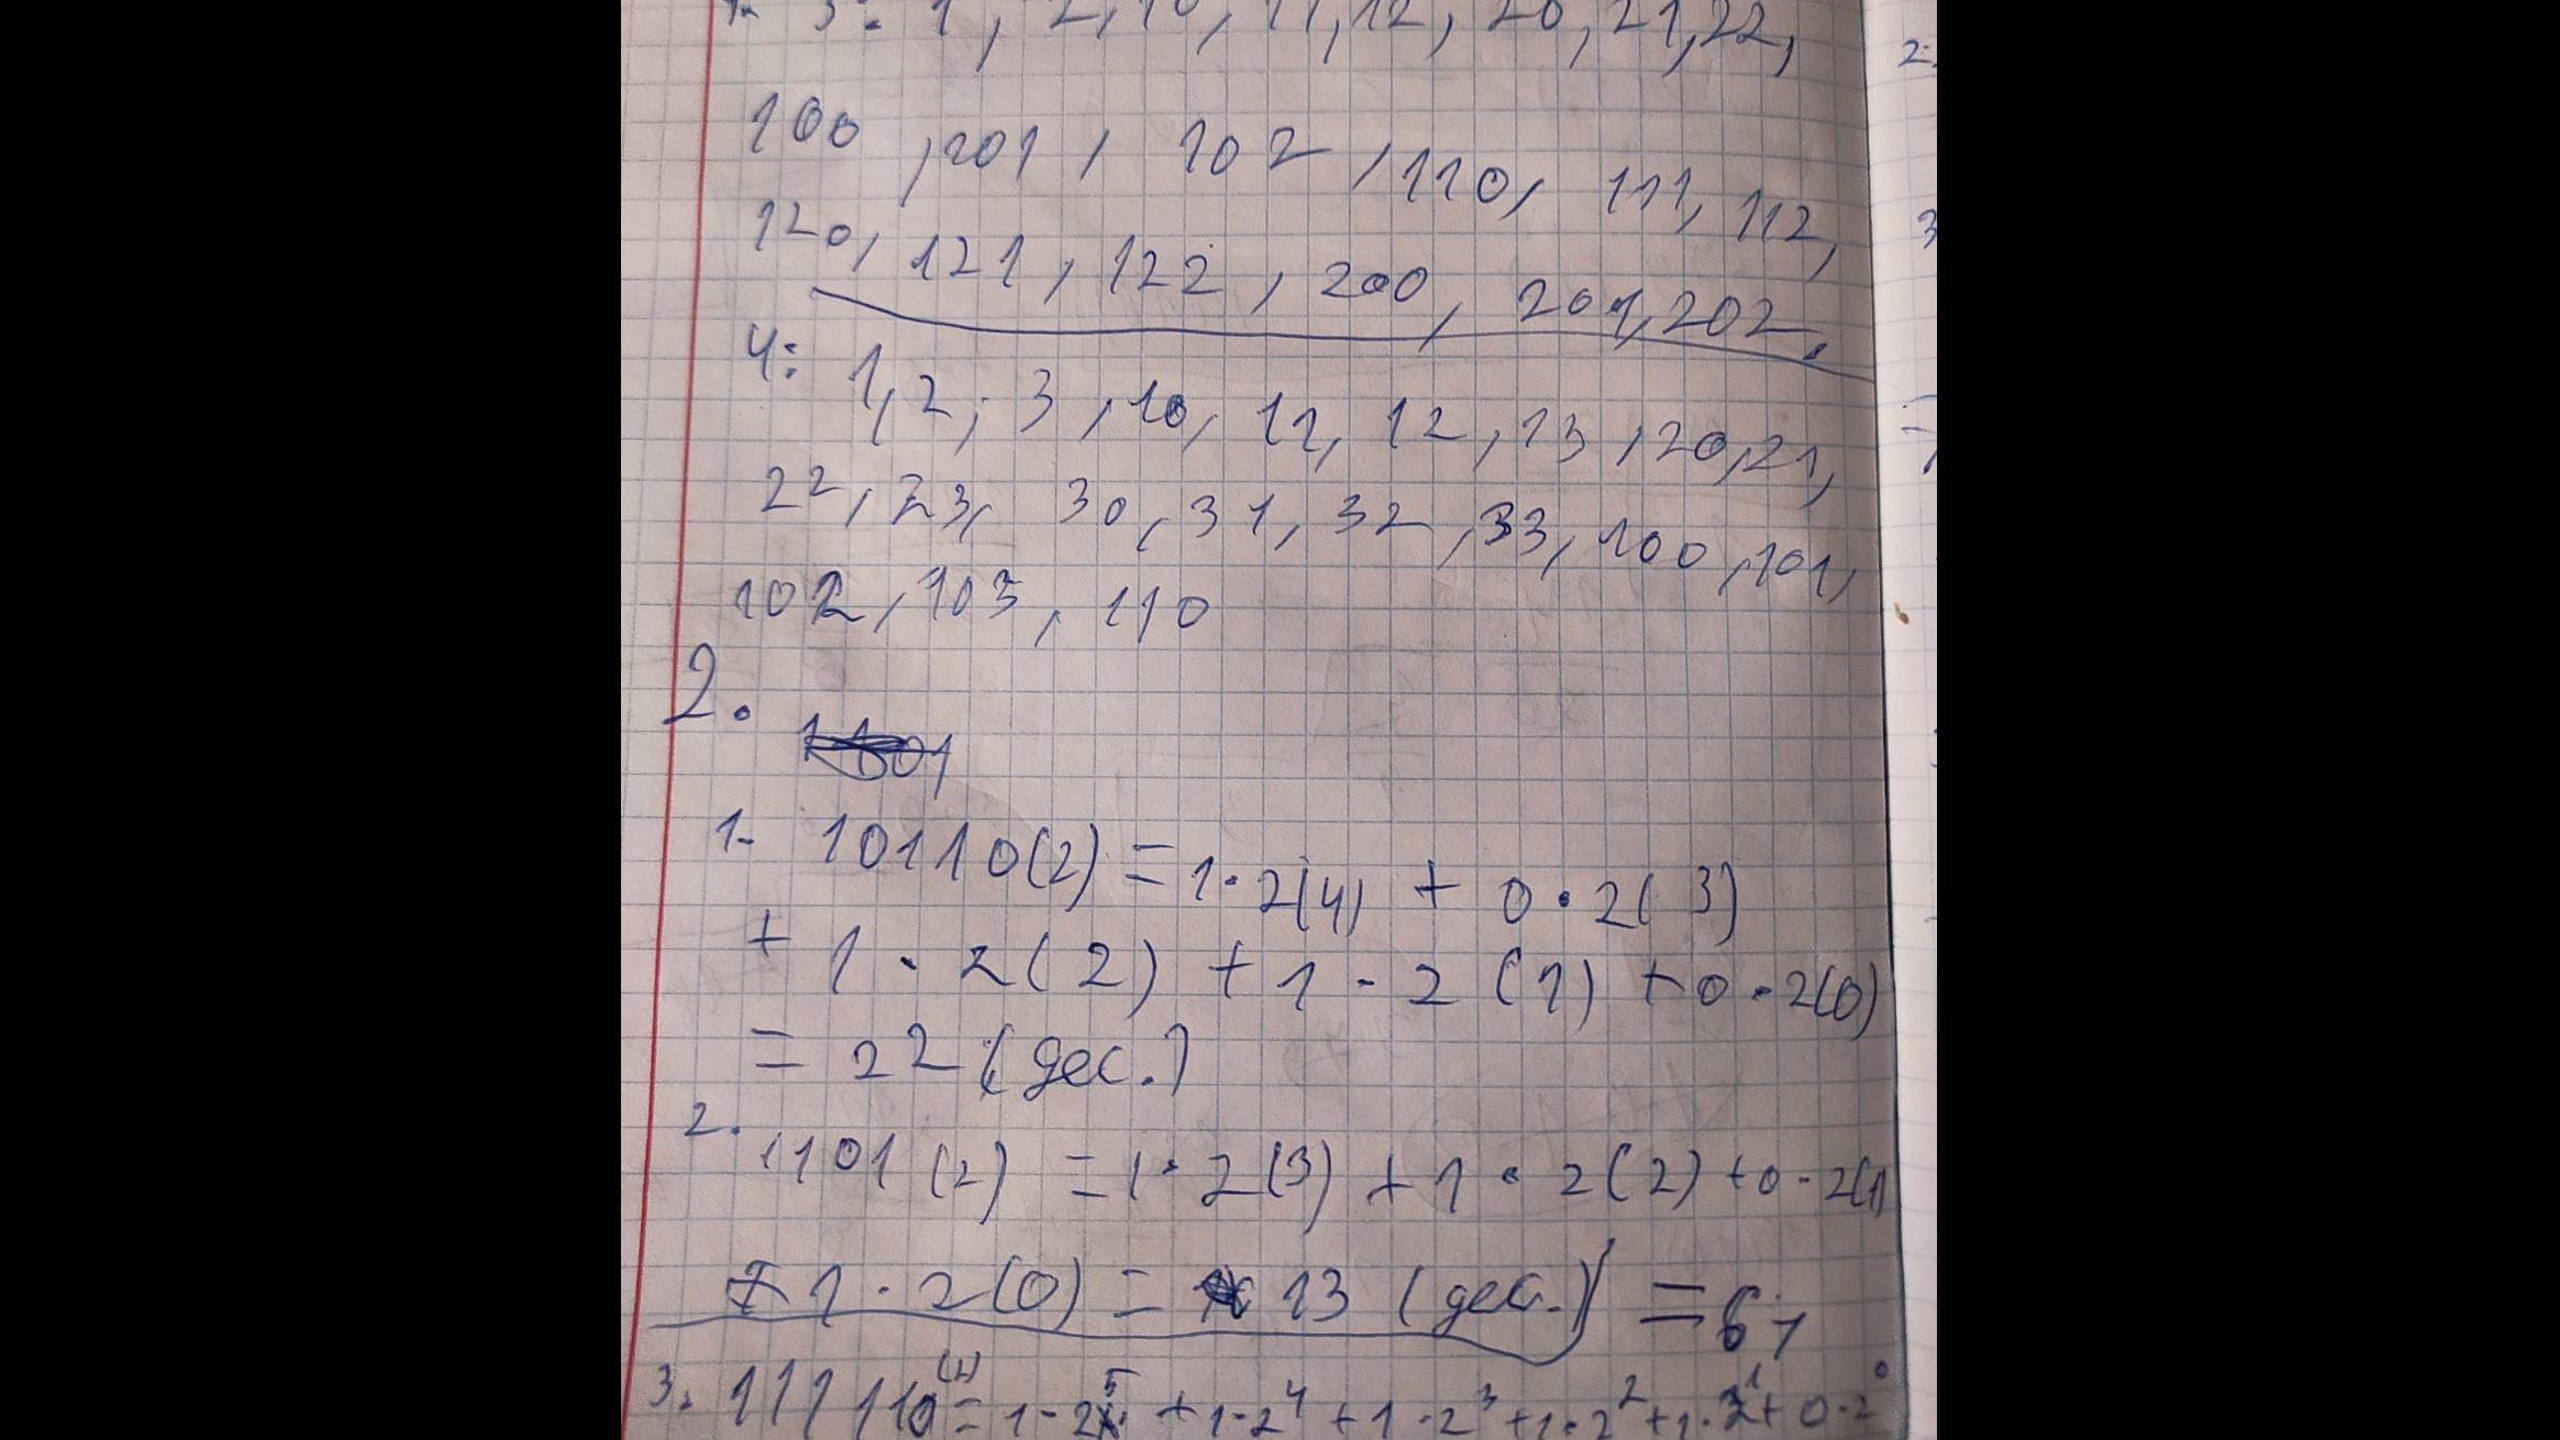 1. 3: 1, 2, 10, 11, 12, 20, 21, 22,
100, 101, 102, 110, 111, 112,
120, 121, 122, 200, 201, 202.
4: 1, 2, 3, 10, 11, 12, 13, 20, 21,
22, 23, 30, 31, 32, 33, 100, 101,
102, 103, 110
2.
1. 10110(2) = 1·2(4) + 0·2(3)
+ 1·2(2) + 1·2(1) + 0·2(0)
= 22 (дес.)
2. 1101(2) = 1·2(3) + 1·2(2) + 0·2(1)
+ 1·2(0) = 13 (дес.)
3. 111110(2) = 1·2⁵ + 1·2⁴ + 1·2³ + 1·2² + 1·2¹ + 0·2⁰